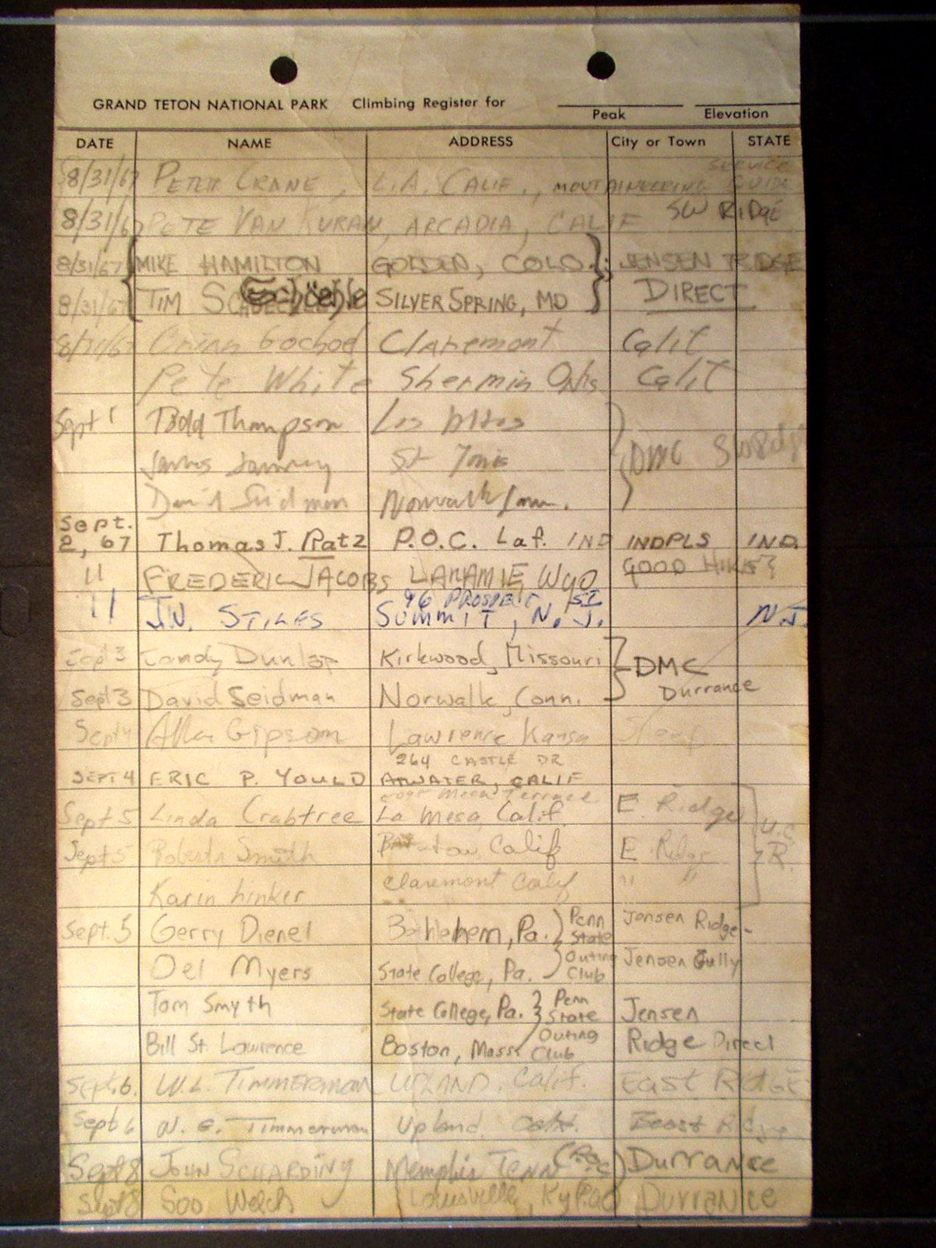 GRAND TETON NATIONAL PARK Climbing Register for
Peak Elevation
DATE NAME ADDRESS City or Town STATE
8/31/67 PETER CRANE, L.A. CALIF., MOUTAINEERING GUIDE SERVICE
8/31/67 PETE VAN KURAN, ARCADIA, CALIF SW RIDGE
8/31/67 MIKE HAMILTON GOLDEN, COLO. JENSEN RIDGE
8/31/67 TIM SILVER SPRING, MD DIRECT
8/31/67 Claremont Calif
Pete White Calif
Sept 1 Todd Thompson Los Altos
James St DMC SW Ridge
David Seidman Norwalk Conn.
Sept.
2, 67 Thomas J. Ratz P.O.C. Laf. IND INDPLS IND.
11 FREDERIC JACOBS LARAMIE WYO GOOD HIKE?
96 PROSPECT ST
11 J.N. STILES SUMMIT, N.J. N.J.
Sept 3 Dunlap Kirkwood, Missouri DMC
Sept 3 David Seidman Norwalk, Conn. Durrance
Sept 4 Allen Gipson Lawrence Kansas
264 CASTLE DR
SEPT 4 ERIC P. YOULD ATWATER, CALIF
Terrace
Sept 5 Linda Crabtree La Mesa Calif. E. Ridge U.C.
Sept 5 Roberta Smith Calif E Ridge R.
Karin Linker Claremont Calif " "
Sept. 5 Gerry Dienel Bethlehem, Pa. Penn State Jensen Ridge-
Del Myers State College, Pa. Outing Club Jensen Gully
Tom Smyth State College, Pa. Penn State Jensen
Bill St. Lawrence Boston, Mass Outing Club Ridge Direct
Sept. 6. W.L. TIMMERMAN UPLAND, Calif. EAST RIDGE
Sept 6 Timmerman Upland Calif. East Ridge
Sept 8 JOHN SCHARDING Memphis TENN Durrance
Sept 8 Welch Louisville, Ky Durrance